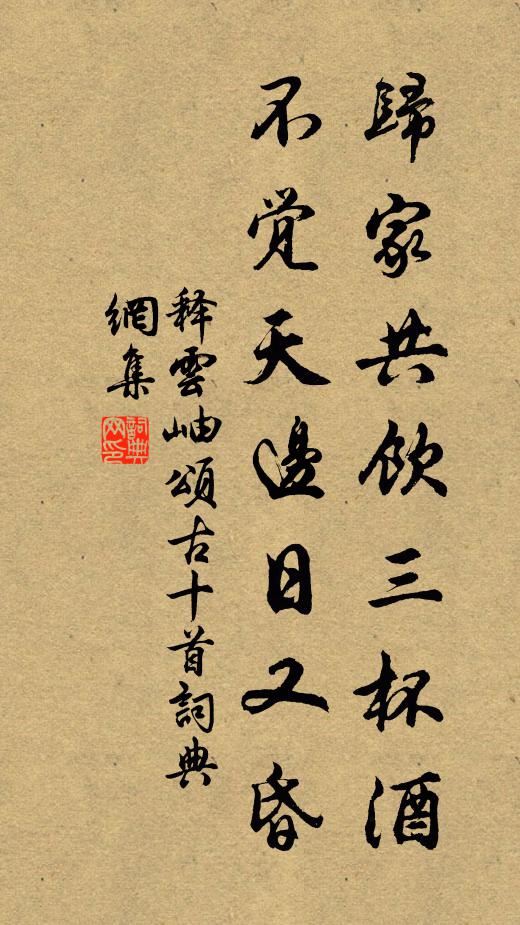 歸家共飲三杯酒
不覚天邊日又昏
释雲岫頌古十首詞典
網集
詞典
网印